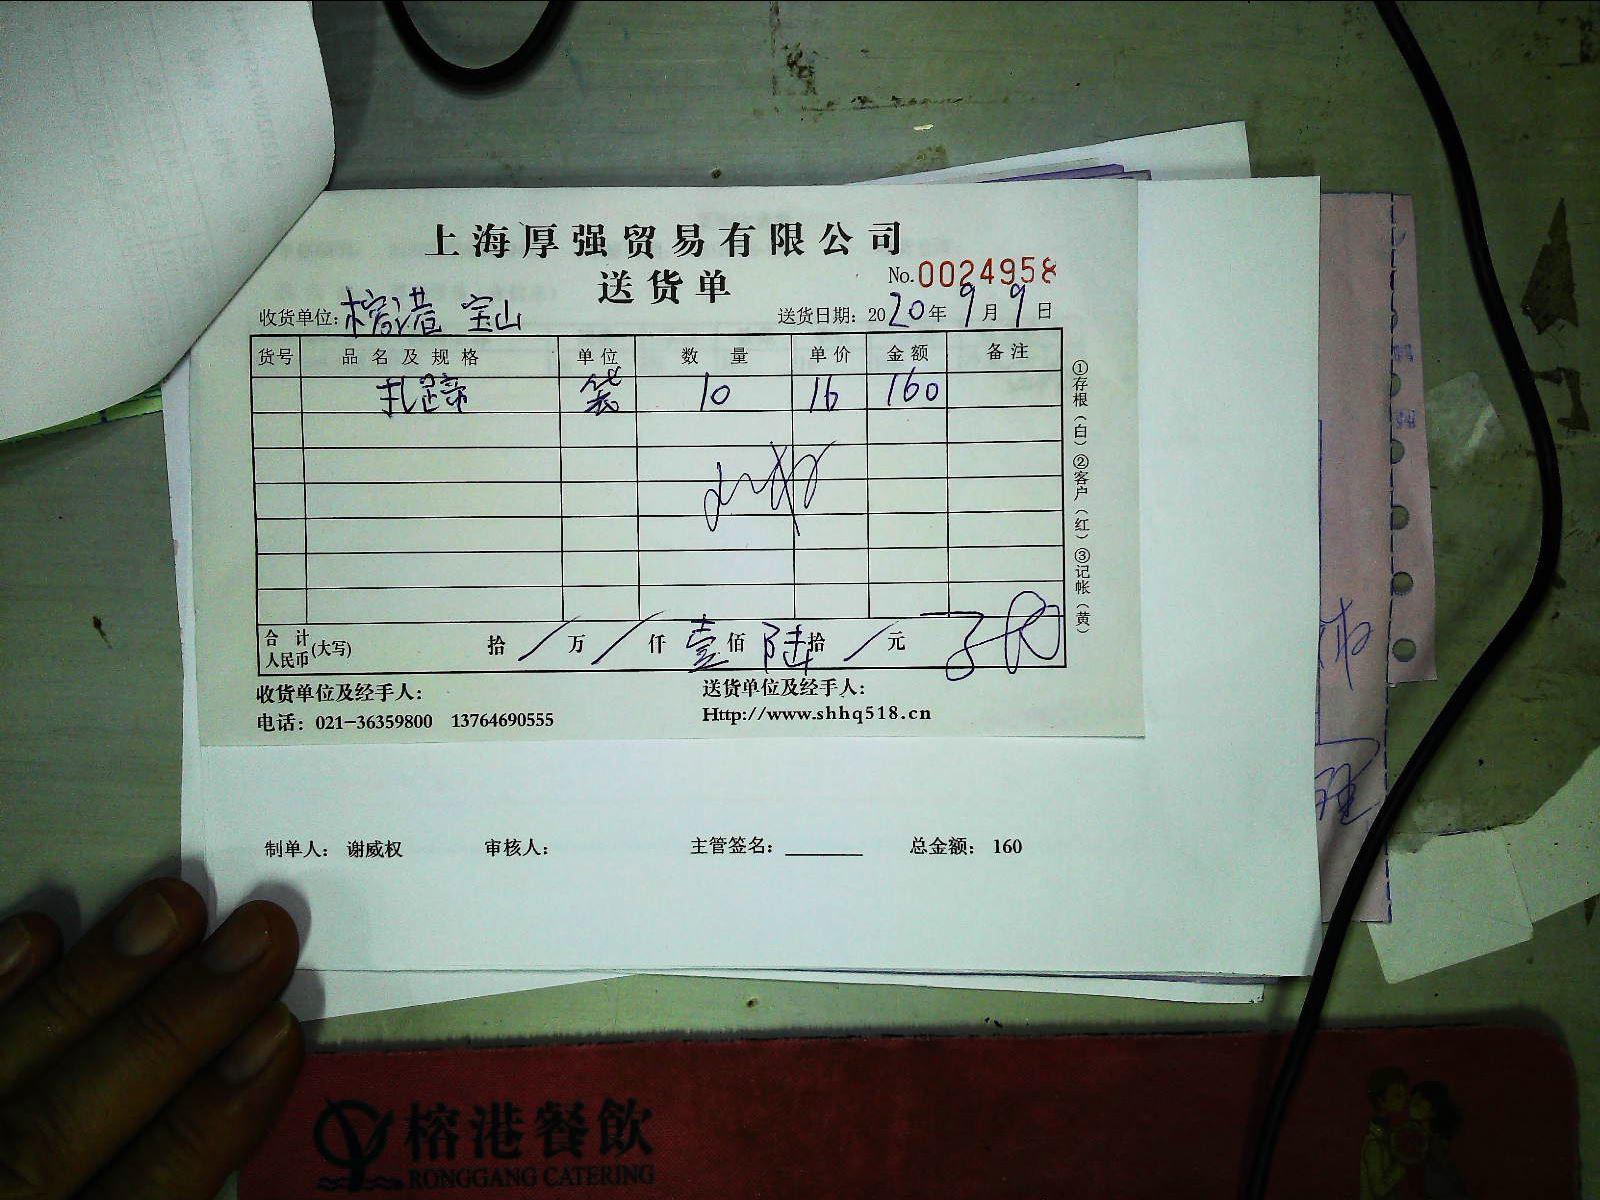 上海厚强贸易有限公司
送货单
No.0024958
收货单位：榕港 宝山
送货日期：2020年9月9日
货号 品名及规格 单位 数量 单价 金额 备注
扎蹄 袋 10 16 160
①存根（白）②客户（红）③记帐（黄）
合计人民币(大写) 拾/万/仟壹佰陆拾/元
收货单位及经手人：
送货单位及经手人：
电话：021-36359800 13764690555
Http://www.shhq518.cn
制单人：谢威权 审核人： 主管签名：________ 总金额：160
榕港餐飲
RONGGANG CATERING